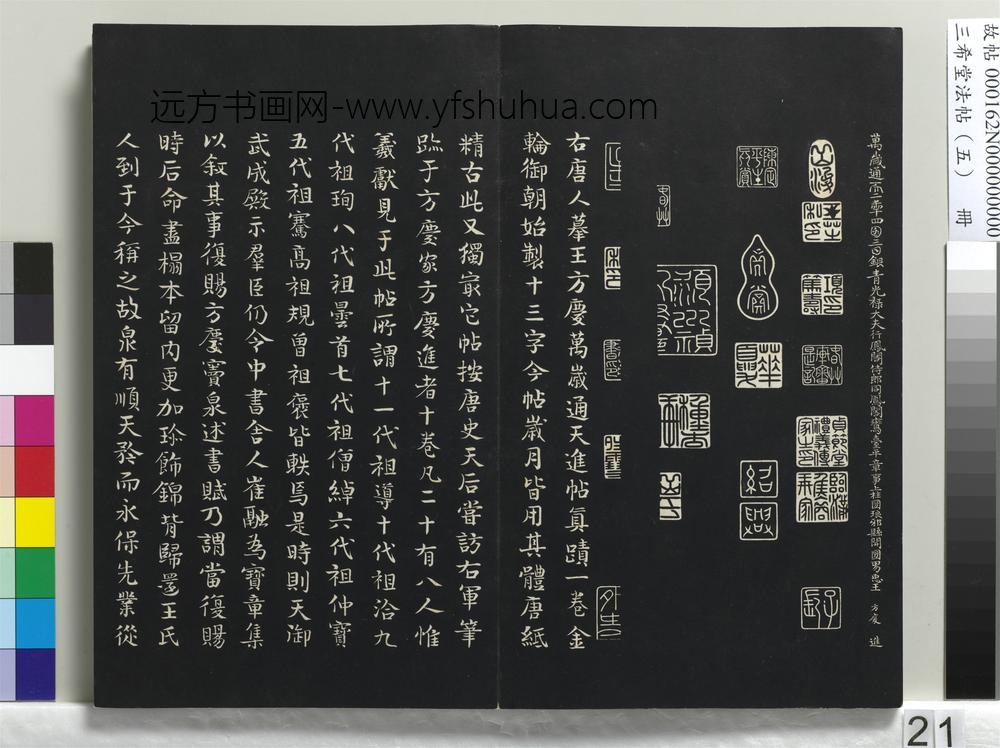 萬歲通天二年四月三日銀青光祿大夫行鳳閣侍郎同鳳閣鸞臺平章事上柱國琅邪縣開國男臣王 方慶 進
紹興
右唐人摹王方慶萬歲通天進帖真蹟一卷金
輪御朝始製十三字今帖歲月皆用其體唐紙
精古此又獨最它帖按唐史天后嘗訪右軍筆
跡于方慶家方慶進者十卷凡二十有八人惟
羲獻見于此帖所謂十一代祖導十代祖洽九
代祖珣八代祖曇首七代祖僧綽六代祖仲寶
五代祖騫高祖規曾祖褒皆軼焉是時則天御
武成殿示羣臣仍令中書舍人崔融為寶章集
以敘其事復賜方慶竇泉述書賦乃謂當復賜
時后命盡榻本留內更加珍飾錦背歸還王氏
人到于今稱之故泉有順天矜而永保先業從
远方书画网-www.yfshuhua.com
故帖 000162N000000000
三希堂法帖（五） 冊
21